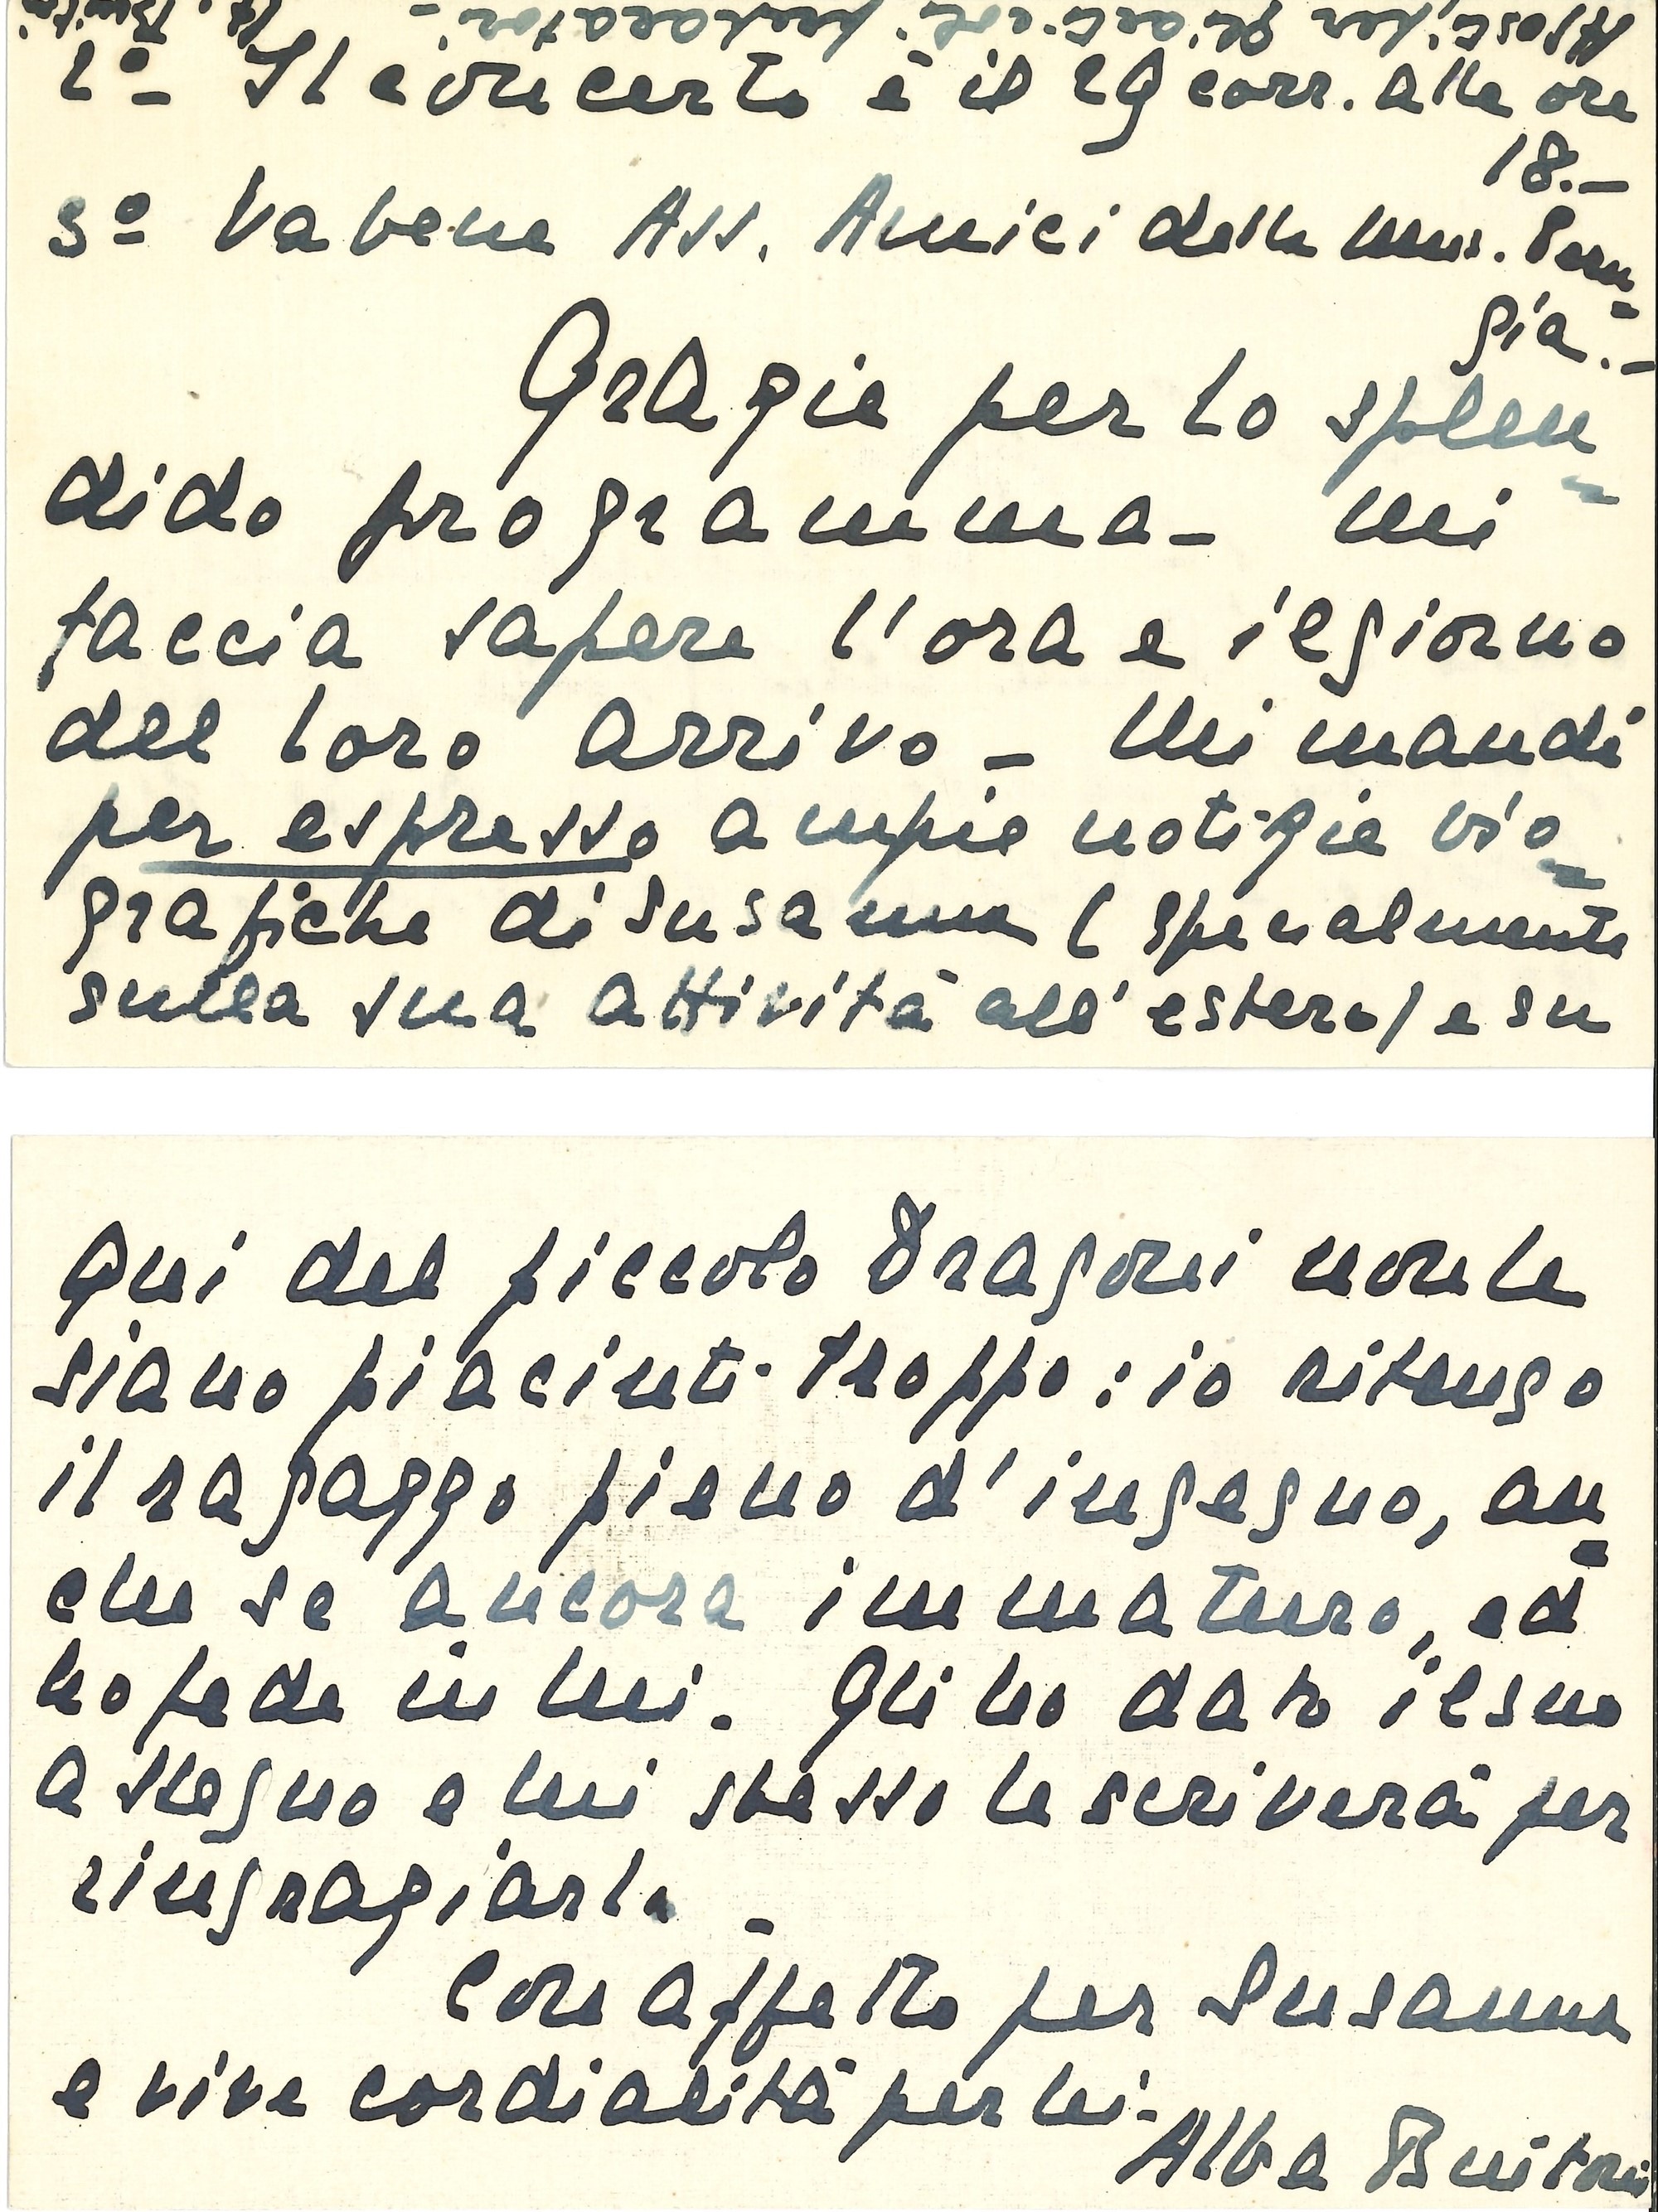 2º - Il concerto è il 29 corr. alle ore
18.-
3º Va bene Ass. Amici della Mus. Peru=
gia.-
Grazie per lo splen=
dido programma - Mi
faccia sapere l'ora e il giorno
del loro arrivo - Mi mandi
per espresso ampie notizie bio=
grafiche di Susanna (specialmente
sulla sua attività all'estero) e su
Qui del piccolo Dragoni non le
siano piaciuti troppo: io ritengo
il ragazzo pieno d'ingegno, an=
che se ancora immaturo, ed
ho fede in lui. Gli ho dato il suo
assegno e lui stesso le scriverà per
ringraziarla -
Con affetto per Susanna
e vive cordialità per lei -
Alba Buitoni